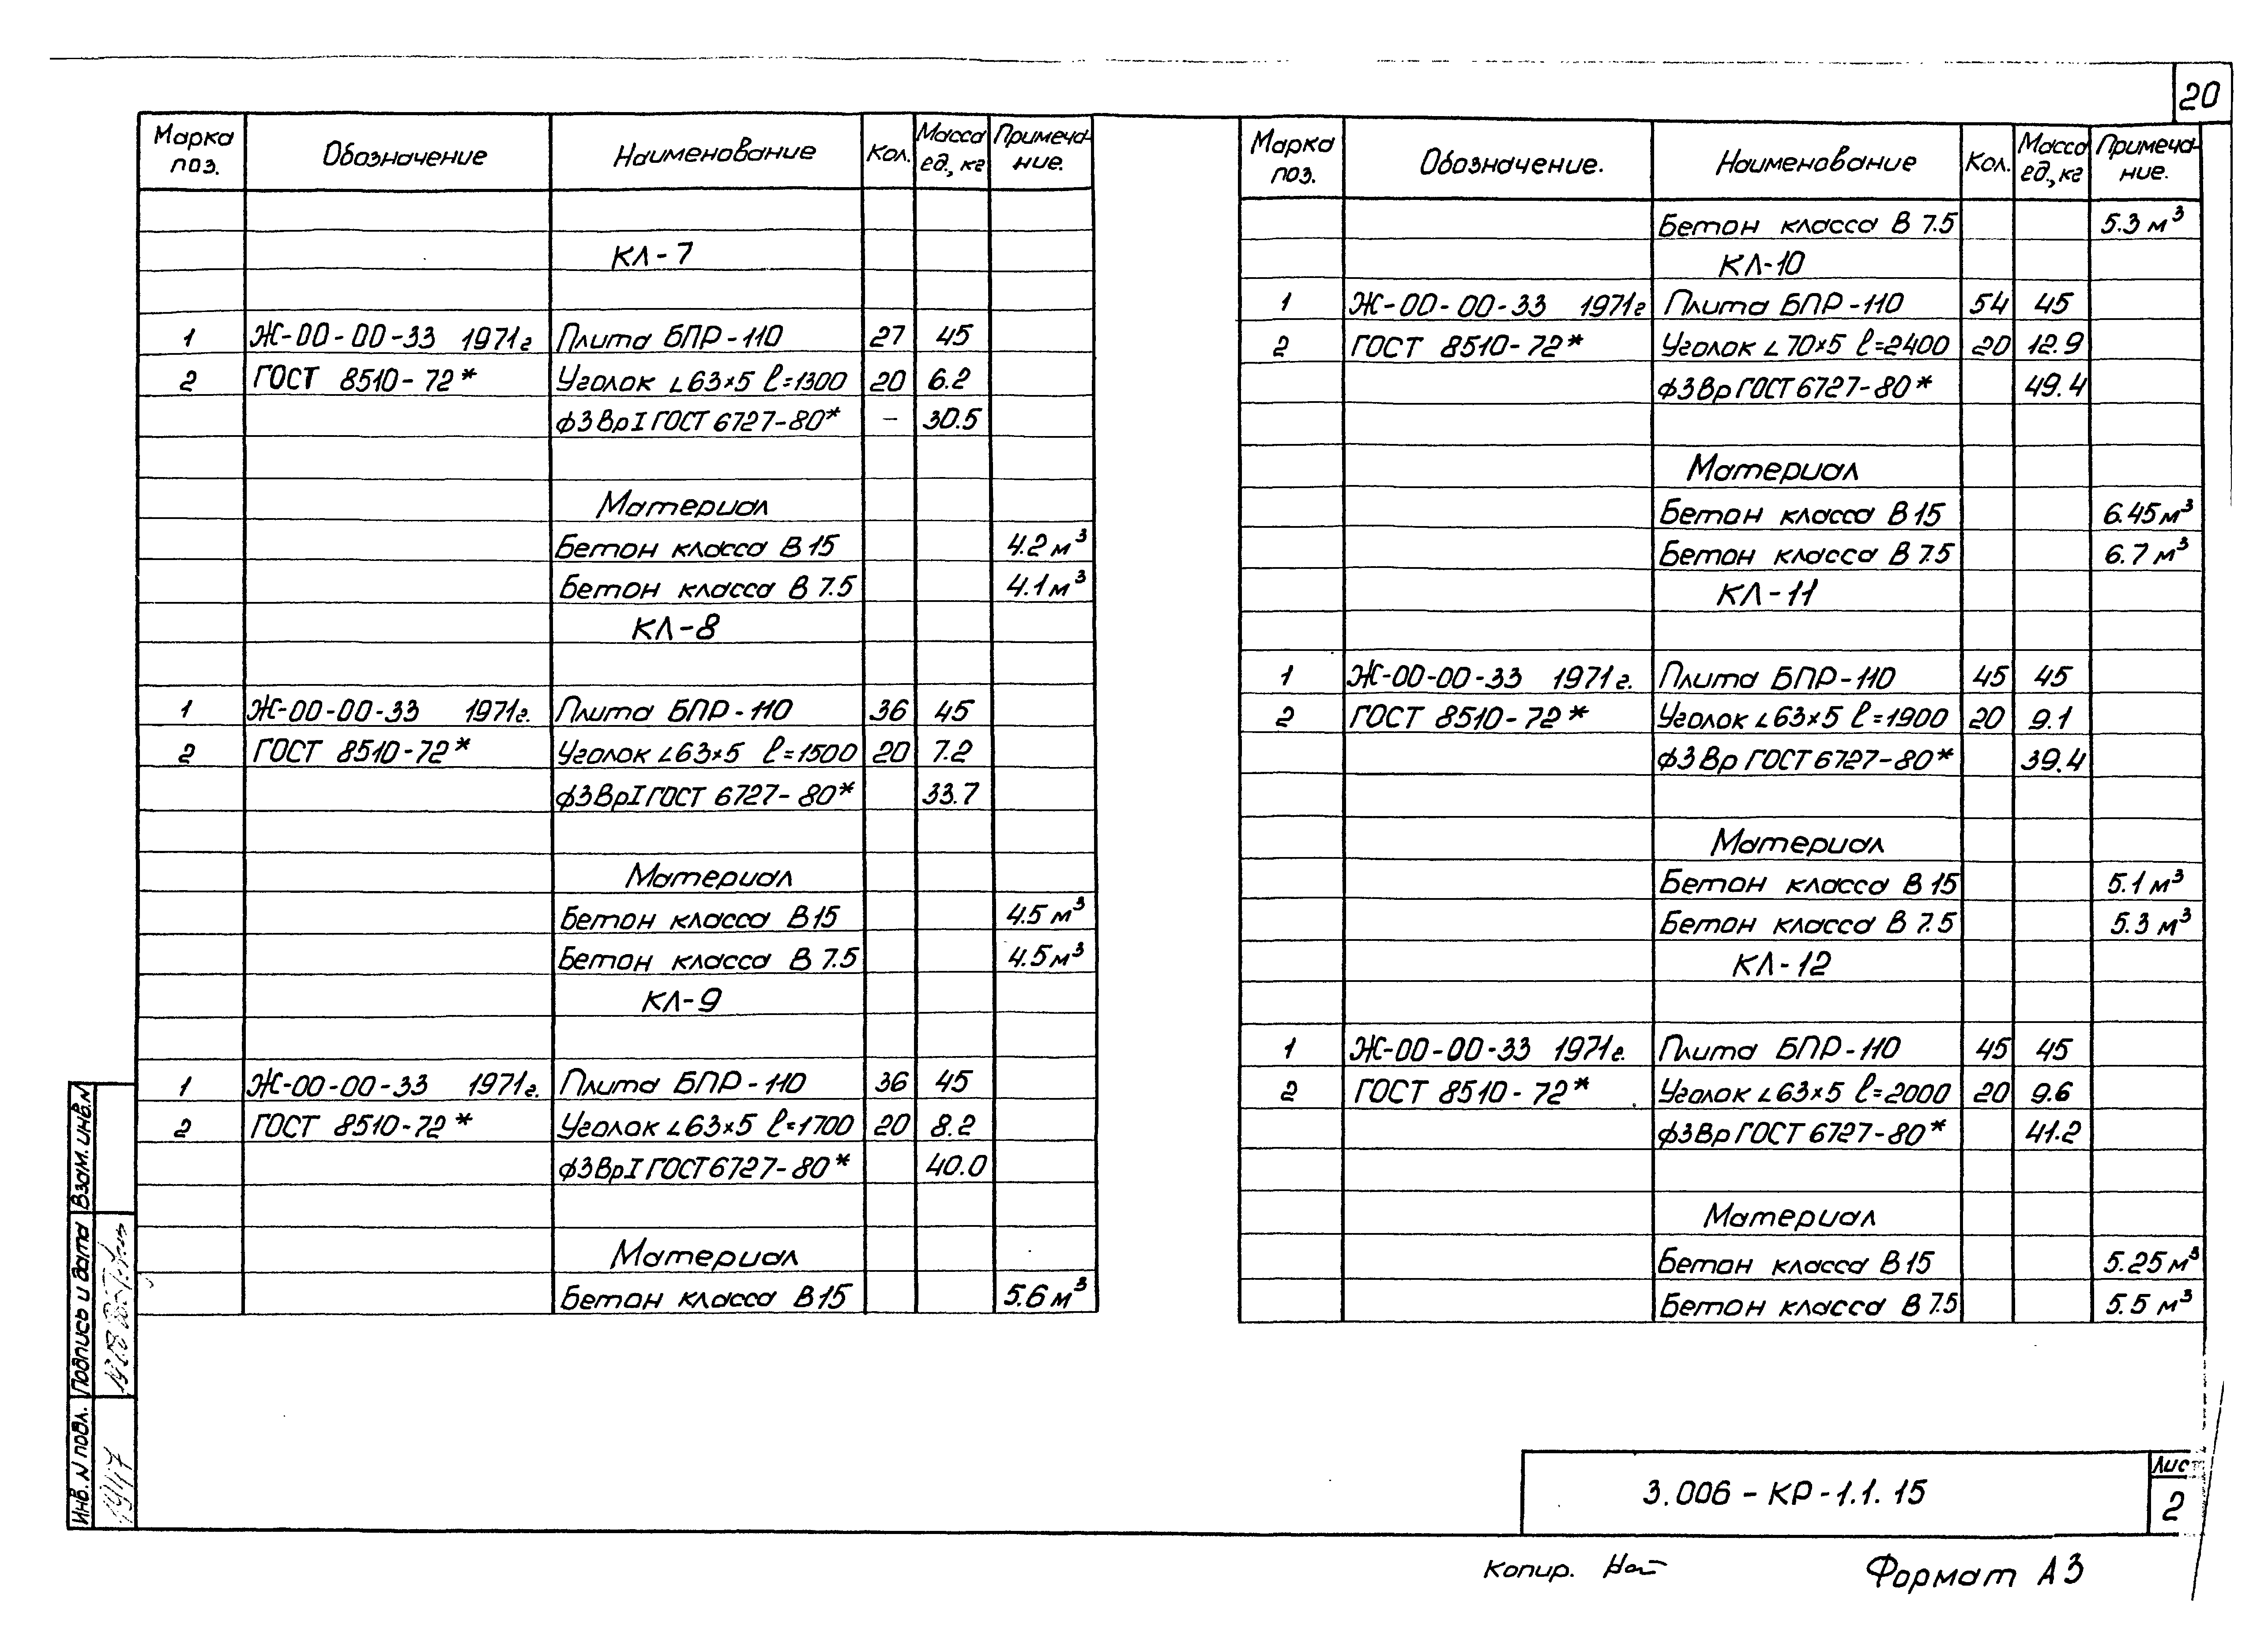 20
Марка поз. Обозначение Наименование Кол. Масса ед., кг Примеча-ние.
КЛ-7
1 Ж-00-00-33 1971г Плита БПР-110 27 45
2 ГОСТ 8510-72* Уголок ∟63×5 ℓ=1300 20 6.2
ф3ВрI ГОСТ 6727-80* – 30.5
Материал
Бетон класса В15 4.2 м³
Бетон класса В 7.5 4.1 м³
КЛ-8
1 Ж-00-00-33 1971г. Плита БПР-110 36 45
2 ГОСТ 8510-72* Уголок ∟63×5 ℓ=1500 20 7.2
ф3ВрI ГОСТ 6727-80* 33.7
Материал
Бетон класса В15 4.5 м³
Бетон класса В 7.5 4.5 м³
КЛ-9
1 Ж-00-00-33 1971г. Плита БПР-110 36 45
2 ГОСТ 8510-72* Уголок ∟63×5 ℓ=1700 20 8.2
ф3ВрI ГОСТ 6727-80* 40.0
Материал
Бетон класса В15 5.6 м³
Марка поз. Обозначение. Наименование Кол. Масса ед., кг Примеча-ние.
Бетон класса В 7.5 5.3 м³
КЛ-10
1 Ж-00-00-33 1971г Плита БПР-110 54 45
2 ГОСТ 8510-72* Уголок ∟70×5 ℓ=2400 20 12.9
ф3Вр ГОСТ 6727-80* 49.4
Материал
Бетон класса В15 6.45 м³
Бетон класса В 7.5 6.7 м³
КЛ-11
1 Ж-00-00-33 1971г. Плита БПР-110 45 45
2 ГОСТ 8510-72* Уголок ∟63×5 ℓ=1900 20 9.1
ф3Вр ГОСТ 6727-80* 39.4
Материал
Бетон класса В15 5.1 м³
Бетон класса В 7.5 5.3 м³
КЛ-12
1 Ж-00-00-33 1971г. Плита БПР-110 45 45
2 ГОСТ 8510-72* Уголок ∟63×5 ℓ=2000 20 9.6
ф3Вр ГОСТ 6727-80* 41.2
Материал
Бетон класса В15 5.25 м³
Бетон класса В 7.5 5.5 м³
Инв. N подл. Подпись и дата Взам. инв. N
3.006-КР-1.1.15
Лист
2
Копир.
Формат А3